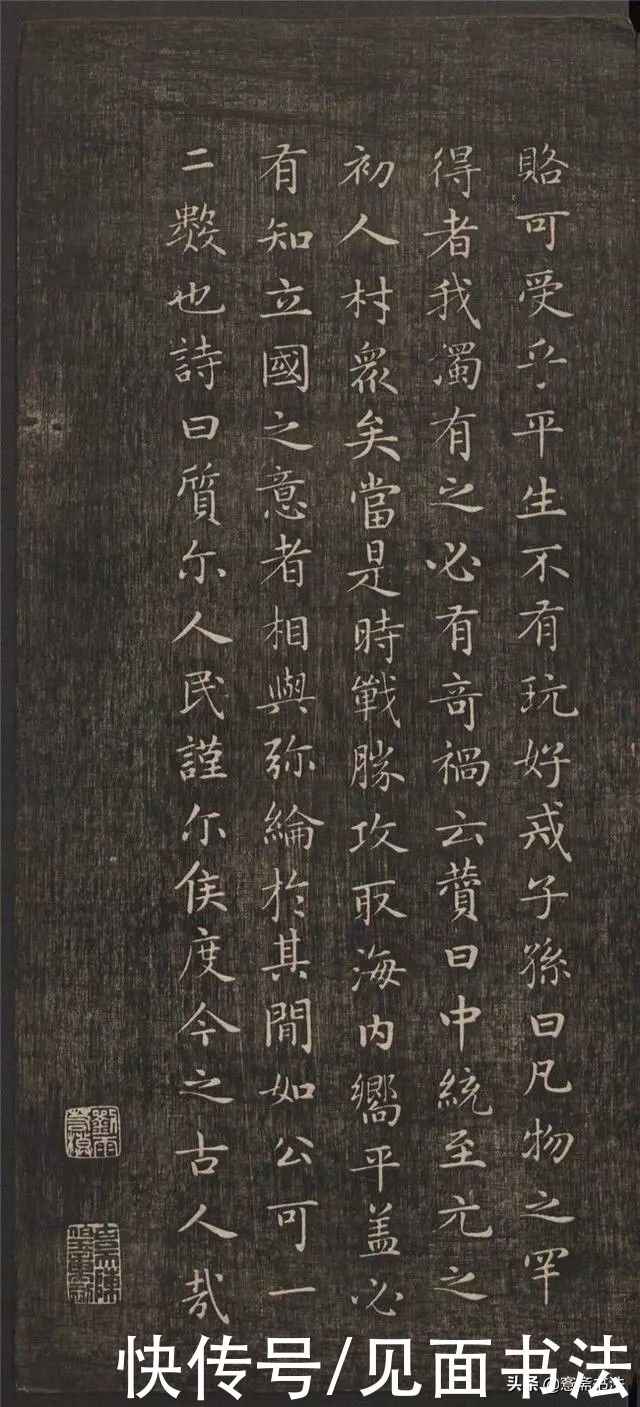 賂可受乎平生不有玩好戒子孫曰凡物之罕
得者我獨有之必有奇禍云贊曰中統至元之
初人材衆矣當是時戰勝攻取海內嚮平盖必
有知立國之意者相與弥綸於其間如公可一
二數也詩曰質尔人民謹尔侯度今之古人哉
快传号/见面书法
头条@愙斋书法